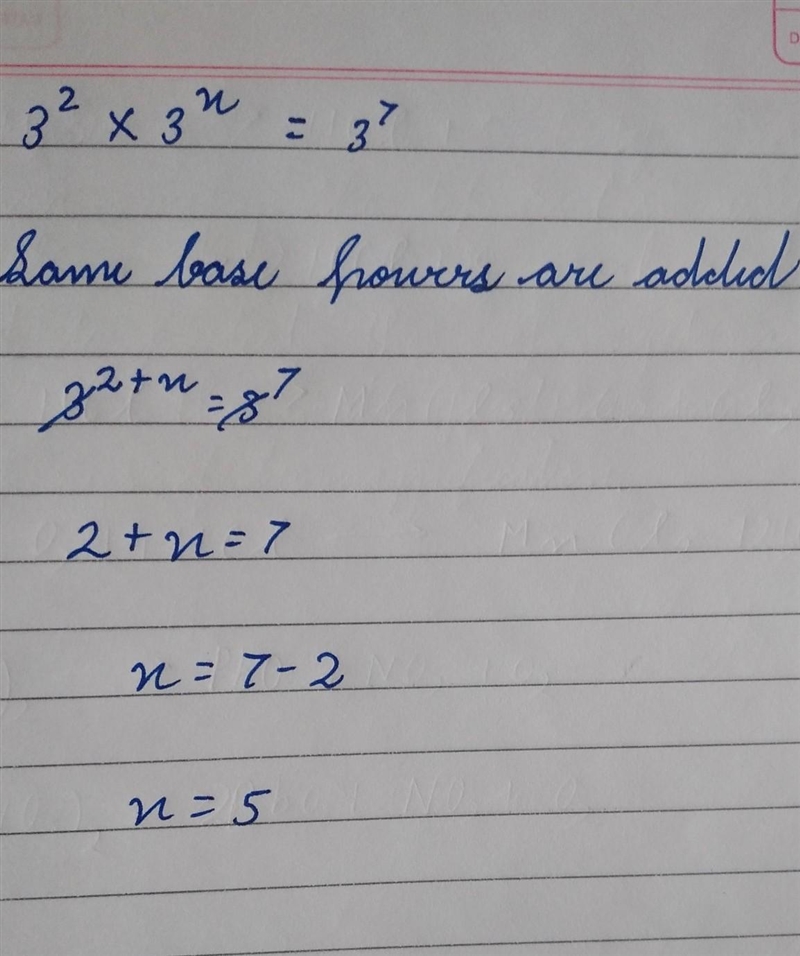 3² × 3ˣ = 3⁷
Same base powers are added
3²⁺ˣ = 3⁷
2 + x = 7
x = 7 - 2
x = 5